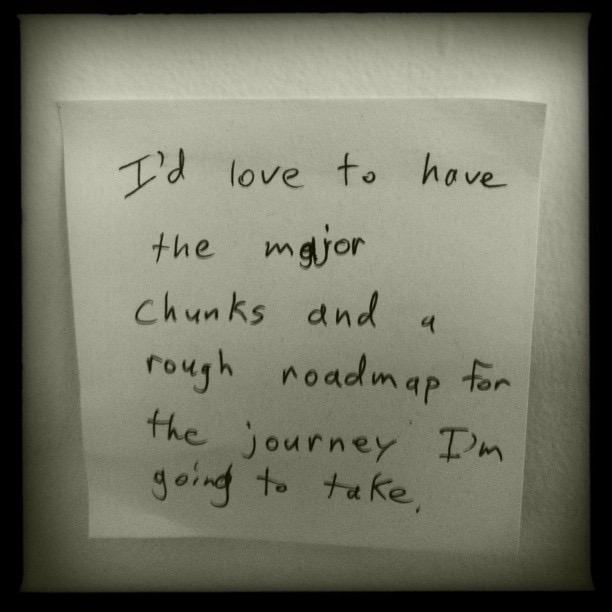 I'd love to have
the major
chunks and a
rough roadmap for
the journey I'm
going to take.